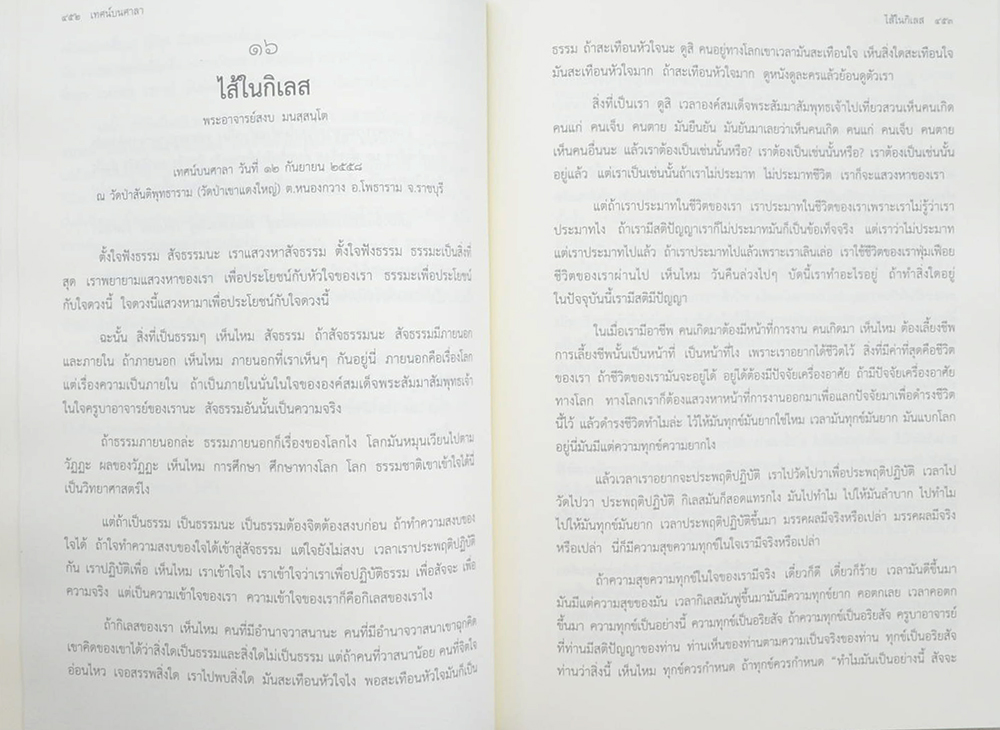 ๔๕๒ เทศน์บนศาลา
๑๖
ไส้ในกิเลส
พระอาจารย์สงบ มนสฺสนฺโต
เทศน์บนศาลา วันที่ ๑๒ กันยายน ๒๕๕๘
ณ วัดป่าสันติพุทธาราม (วัดป่าเขาแดงใหญ่) ต.หนองกวาง อ.โพธาราม จ.ราชบุรี
ตั้งใจฟังธรรม สัจธรรมนะ เราแสวงหาสัจธรรม ตั้งใจฟังธรรม ธรรมะเป็นสิ่งที่
สุด เราพยายามแสวงหาของเรา เพื่อประโยชน์กับหัวใจของเรา ธรรมะเพื่อประโยชน์
กับใจดวงนี้ ใจดวงนี้แสวงหามาเพื่อประโยชน์กับใจดวงนี้
ฉะนั้น สิ่งที่เป็นธรรมๆ เห็นไหม สัจธรรม ถ้าสัจธรรมนะ สัจธรรมมีภายนอก
และภายใน ถ้าภายนอก เห็นไหม ภายนอกที่เราเห็นๆ กันอยู่นี่ ภายนอกคือเรื่องโลก
แต่เรื่องความเป็นภายใน ถ้าเป็นภายในนั่นในใจขององค์สมเด็จพระสัมมาสัมพุทธเจ้า
ในใจครูบาอาจารย์ของเรานะ สัจธรรมอันนั้นเป็นความจริง
ถ้าธรรมภายนอกล่ะ ธรรมภายนอกก็เรื่องของโลกไง โลกมันหมุนเวียนไปตาม
วัฏฏะ ผลของวัฏฏะ เห็นไหม การศึกษา ศึกษาทางโลก โลก ธรรมชาติเขาเข้าใจได้นี่
เป็นวิทยาศาสตร์ไง
แต่ถ้าเป็นธรรม เป็นธรรมนะ เป็นธรรมต้องจิตต้องสงบก่อน ถ้าทำความสงบของ
ใจได้ ถ้าใจทำความสงบของใจได้เข้าสู่สัจธรรม แต่ใจยังไม่สงบ เวลาเราประพฤติปฏิบัติ
กัน เราปฏิบัติเพื่อ เห็นไหม เราเข้าใจไง เราเข้าใจว่าเราเพื่อปฏิบัติธรรม เพื่อสัจจะ เพื่อ
ความจริง แต่เป็นความเข้าใจของเรา ความเข้าใจของเราก็คือกิเลสของเราไง
ถ้ากิเลสของเรา เห็นไหม คนที่มีอำนาจวาสนานะ คนที่มีอำนาจวาสนาเขาฉุกคิด
เขาคิดของเขาได้ว่าสิ่งใดเป็นธรรมและสิ่งใดไม่เป็นธรรม แต่ถ้าคนที่วาสนาน้อย คนที่จิตใจ
อ่อนไหว เจอสรรพสิ่งใด เราไปพบสิ่งใด มันสะเทือนหัวใจไง พอสะเทือนหัวใจมันก็เป็น
ไส้ในกิเลส ๔๕๓
ธรรม ถ้าสะเทือนหัวใจนะ ดูสิ คนอยู่ทางโลกเขาเวลามันสะเทือนใจ เห็นสิ่งใดสะเทือนใจ
มันสะเทือนหัวใจมาก ถ้าสะเทือนหัวใจมาก ดูหนังดูละครแล้วย้อนดูตัวเรา
สิ่งที่เป็นเรา ดูสิ เวลาองค์สมเด็จพระสัมมาสัมพุทธเจ้าไปเที่ยวสวนเห็นคนเกิด
คนแก่ คนเจ็บ คนตาย มันยืนยัน มันยันมาเลยว่าเห็นคนเกิด คนแก่ คนเจ็บ คนตาย
เห็นคนอื่นนะ แล้วเราต้องเป็นเช่นนั้นหรือ? เราต้องเป็นเช่นนั้นหรือ? เราต้องเป็นเช่นนั้น
อยู่แล้ว แต่เราเป็นเช่นนั้นถ้าเราไม่ประมาท ไม่ประมาทชีวิต เราก็จะแสวงหาของเรา
แต่ถ้าเราประมาทในชีวิตของเรา เราประมาทในชีวิตของเราเพราะเราไม่รู้ว่าเรา
ประมาทไง ถ้าเรามีสติปัญญาเราก็ไม่ประมาทมันก็เป็นข้อเท็จจริง แต่เราว่าไม่ประมาท
แต่เราประมาทไปแล้ว ถ้าเราประมาทไปแล้วเพราะเราเลินเล่อ เราใช้ชีวิตของเราฟุ่มเฟือย
ชีวิตของเราผ่านไป เห็นไหม วันคืนล่วงไปๆ บัดนี้เราทำอะไรอยู่ ถ้าทำสิ่งใดอยู่
ในปัจจุบันนี้เรามีสติมีปัญญา
ในเมื่อเรามีอาชีพ คนเกิดมาต้องมีหน้าที่การงาน คนเกิดมา เห็นไหม ต้องเลี้ยงชีพ
การเลี้ยงชีพนั้นเป็นหน้าที่ เป็นหน้าที่ไง เพราะเราอยากได้ชีวิตไว้ สิ่งที่มีค่าที่สุดคือชีวิต
ของเรา ถ้าชีวิตของเรามันจะอยู่ได้ อยู่ได้ต้องมีปัจจัยเครื่องอาศัย ถ้ามีปัจจัยเครื่องอาศัย
ทางโลก ทางโลกเราก็ต้องแสวงหาหน้าที่การงานออกมาเพื่อแลกปัจจัยมาเพื่อดำรงชีวิต
นี้ไว้ แล้วดำรงชีวิตทำไมล่ะ ไว้ให้มันทุกข์มันยากใช่ไหม เวลามันทุกข์มันยาก มันแบกโลก
อยู่นี่มันมีแต่ความทุกข์ความยากไง
แล้วเวลาเราอยากจะประพฤติปฏิบัติ เราไปวัดไปวาเพื่อประพฤติปฏิบัติ เวลาไป
วัดไปวา ประพฤติปฏิบัติ กิเลสมันก็สอดแทรกไง มันไปทำไม ไปให้มันลำบาก ไปทำไม
ไปให้มันทุกข์มันยาก เวลาประพฤติปฏิบัติขึ้นมา มรรคผลมีจริงหรือเปล่า มรรคผลมีจริง
หรือเปล่า นี่ก็มีความสุขความทุกข์ในใจเรามีจริงหรือเปล่า
ถ้าความสุขความทุกข์ในใจของเรามีจริง เดี๋ยวก็ดี เดี๋ยวก็ร้าย เวลามันดีขึ้นมา
มันมีแต่ความสุขของมัน เวลากิเลสมันฟูขึ้นมามันมีความทุกข์ยาก คอตกเลย เวลาคอตก
ขึ้นมา ความทุกข์เป็นอย่างนี้ ความทุกข์เป็นอริยสัจ ถ้าความทุกข์เป็นอริยสัจ ครูบาอาจารย์
ที่ท่านมีสติปัญญาของท่าน ท่านเห็นของท่านตามความเป็นจริงของท่าน ทุกข์เป็นอริยสัจ
ท่านว่าสิ่งนี้ เห็นไหม ทุกข์ควรกำหนด ถ้าทุกข์ควรกำหนด “ทำไมมันเป็นอย่างนี้ สัจจะ